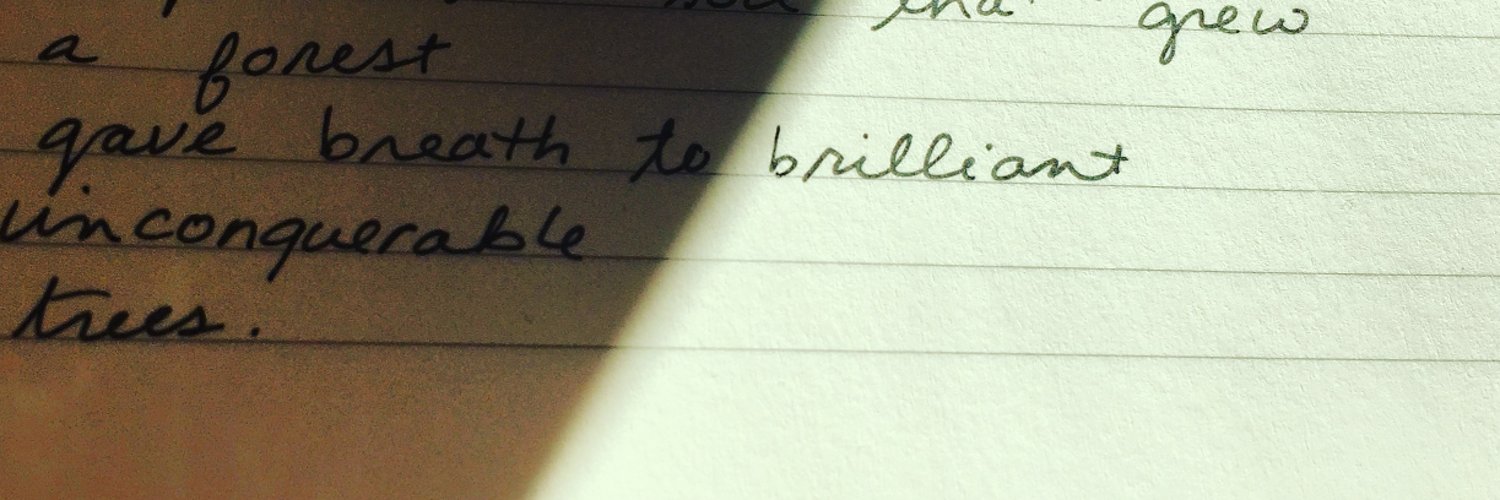 grew
a forest
gave breath to brilliant
unconquerable
trees.